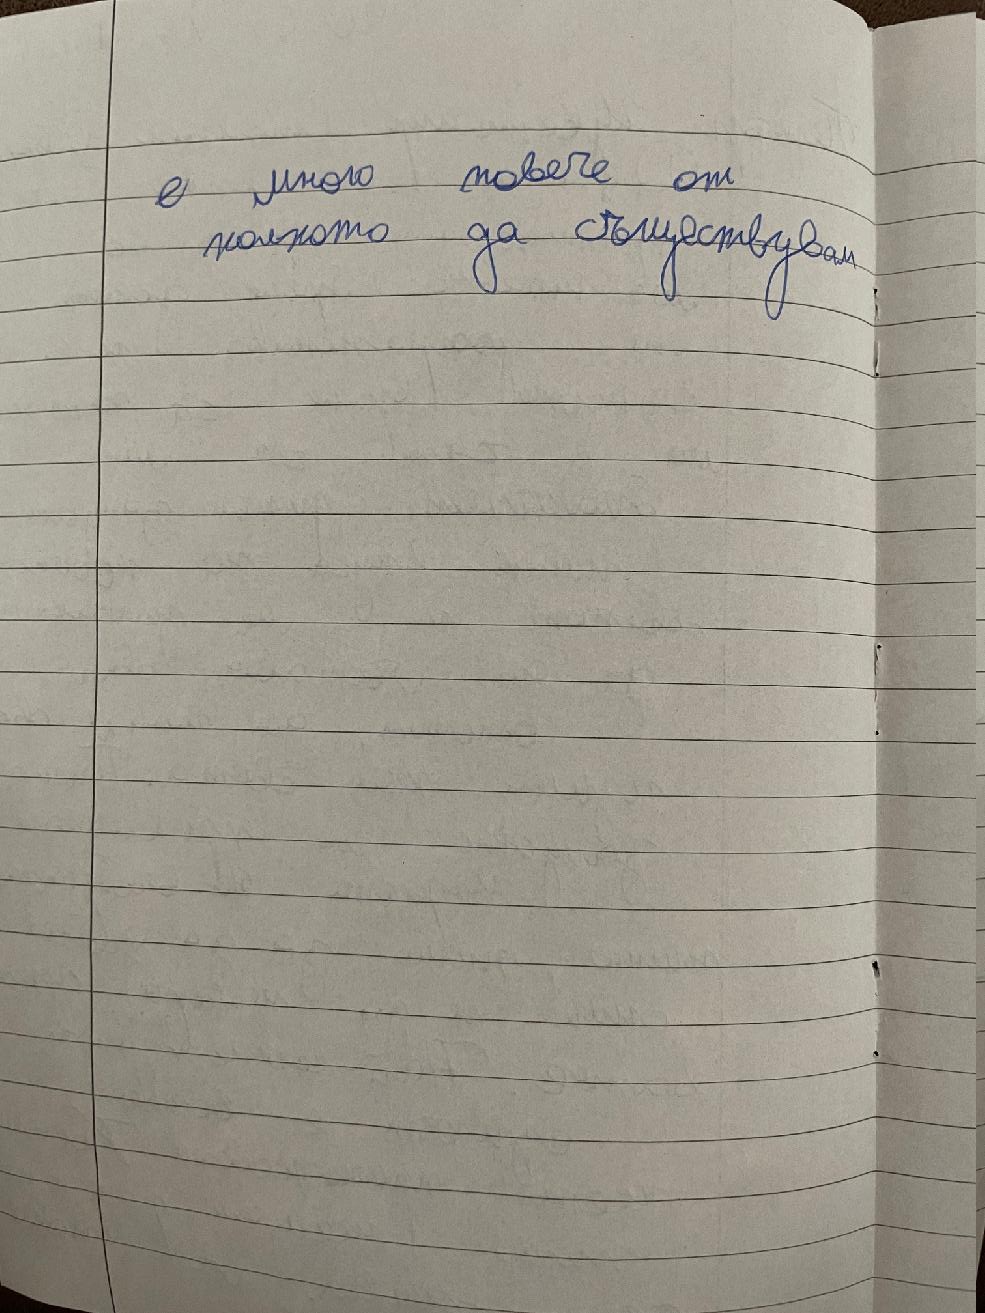 е много повече от
колкото да съществувам